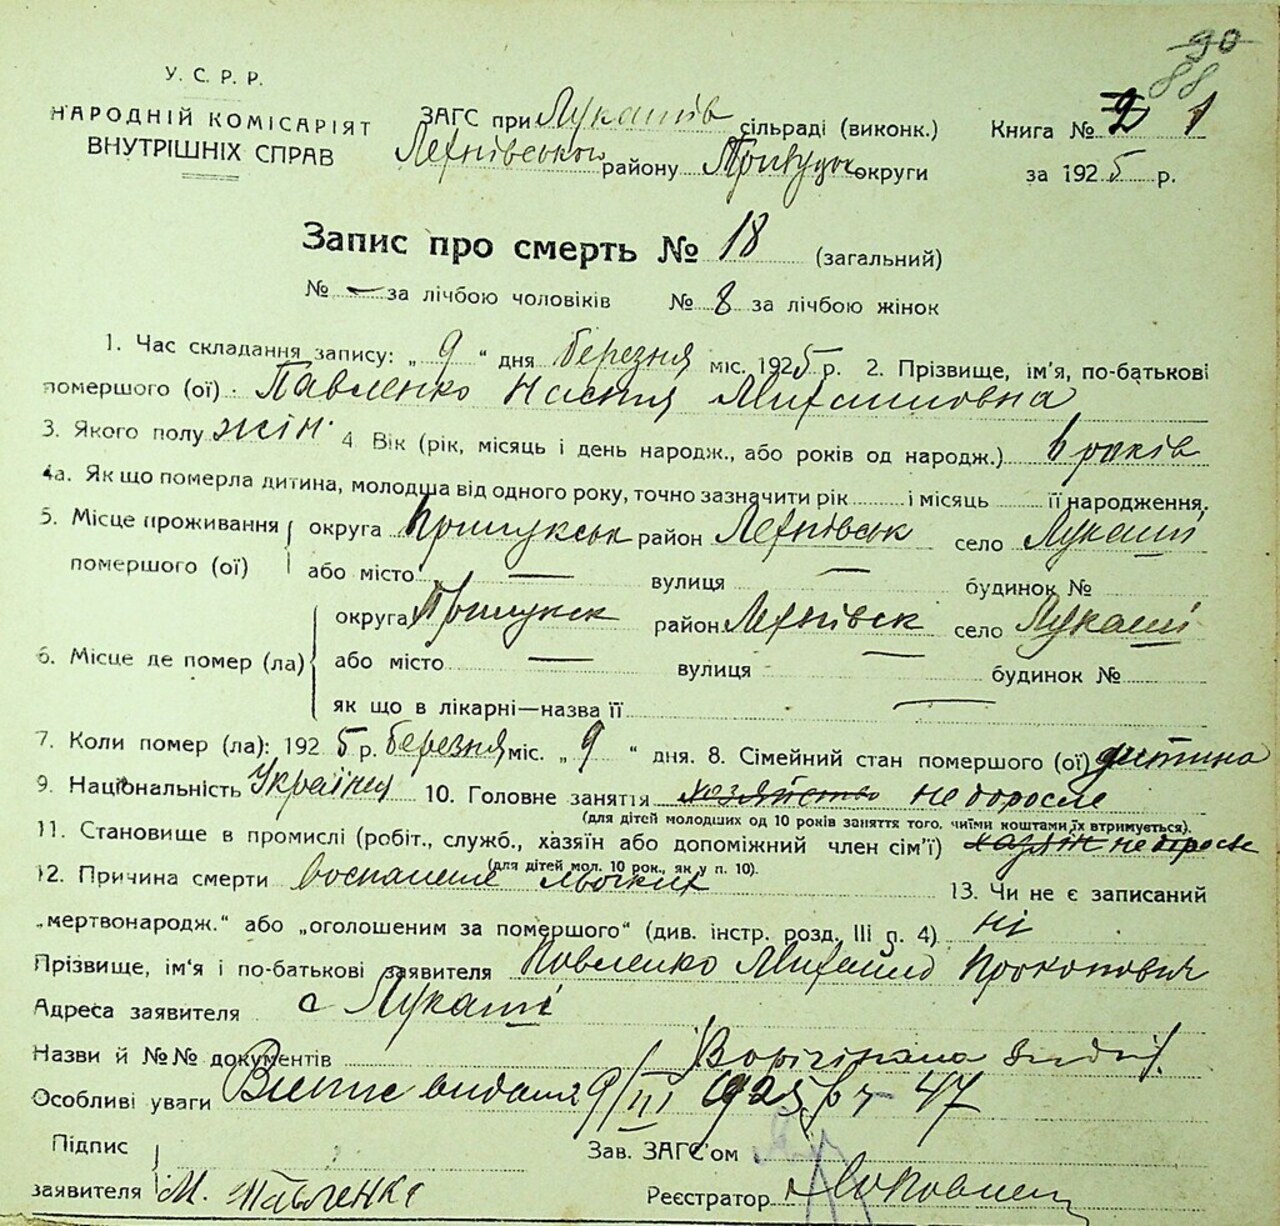 90
88
У. С. Р. Р.
НАРОДНІЙ КОМІСАРІЯТ
ВНУТРІШНІХ СПРАВ
ЗАГС при Лукашів сільраді (виконк.)
району округи
Книга № 2 1
за 1925 р.
Запис про смерть № 18 (загальний)
№ — за лічбою чоловіків № 8 за лічбою жінок
1. Час складання запису: „ 9 “ дня березня міс. 1925 р. 2. Прізвище, ім'я, по-батькові
помершого (ої) Павленко Настя Михайловна
3. Якого полу жін. 4 Вік (рік, місяць і день народж., або років од народж.) 6 років
4а. Як що померла дитина, молодша від одного року, точно зазначити рік і місяць її народження.
5. Місце проживання округа Прилукськ район село Лукаші
помершого (ої) або місто — вулиця — будинок №
округа Прилукск район село Лукаші
6. Місце де помер (ла) або місто — вулиця — будинок №
як що в лікарні—назва її —
7. Коли помер (ла): 1925 р. березня міс. „ 9 “ дня. 8. Сімейний стан помершого (ої) дитина
9. Національність Українка 10. Головне заняття хозяйство не доросле
(для дітей молодших од 10 років заняття того, чиїми коштами їх втримується).
11. Становище в промислі (робіт., служб., хазяїн або допоміжний член сім'ї) хазяін не доросле
(для дітей мол. 10 рок., як у п. 10).
12. Причина смерти воспаление льогких 13. Чи не є записаний
„мертвонародж.“ або „оголошеним за помершого“ (див. інстр. розд. III п. 4) ні
Прізвище, ім'я і по-батькові заявителя Павленко Михайло Прокопович
Адреса заявителя с Лукаші
Назви й №№ документів
Особливі уваги Випис видана 9/III 1925 р 47
Підпис
заявителя М. Павленко
Зав. ЗАГС'ом
Реєстратор